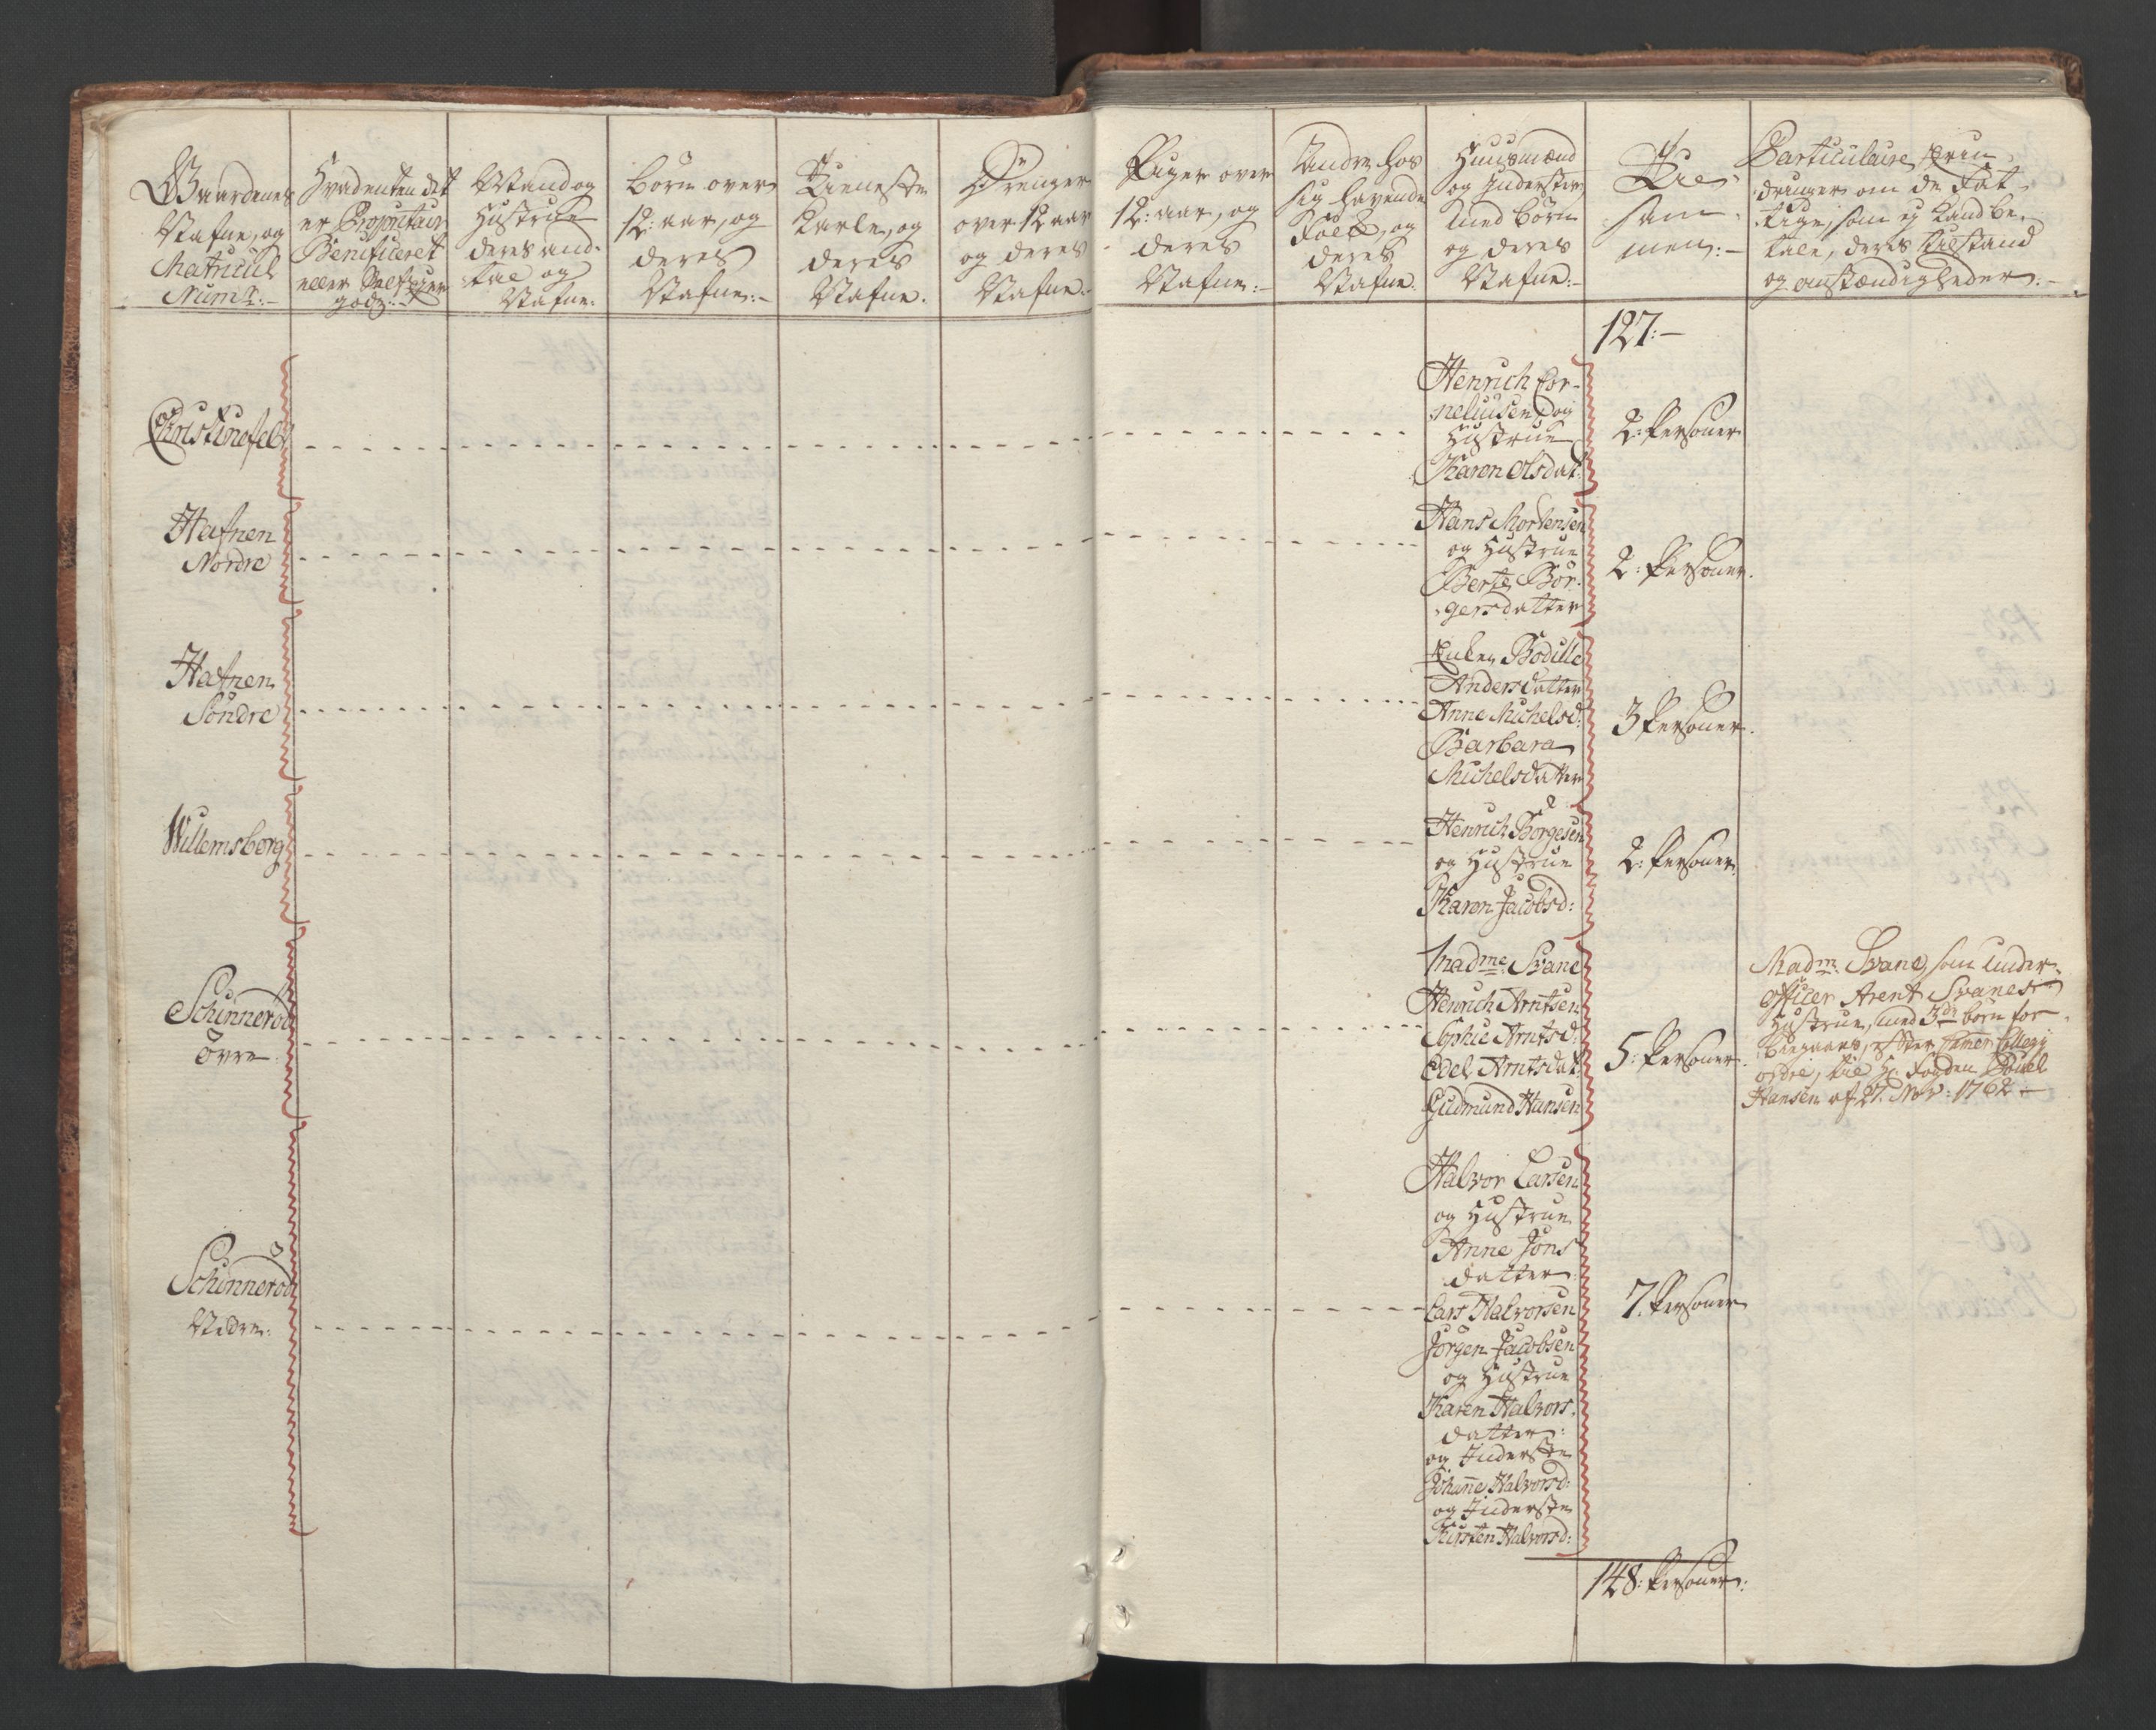 Gaardenes
Nafne, og
Matricul
Numr:
Hvadenten det
er Proprietair
Beneficeret
eller Selveyer
gods:
Mand og
Hustrue
deres and-
tal og
Nafne:
Börn over
12: aar, og
deres
Nafne:
Tieneste
Karle, og
deres
Nafne.
Drenger
over 12 aar
og deres
Nafne:
Piger over
12: aar, og
deres
Nafne:
Andre hos
sig havende
Folk, og
deres
Nafne.
Huusmænd
og Inderster
med börn
og deres
Nafne:
Til-
sam-
men:
Particulaire Erin-
dringer om de Fat-
tige, som ej kand be-
tale, deres tilstand
og omstændigheder:
127:
Christinefelt
Henrich Cor-
neliusen og
Hustrue
Karen Olsdat:
2: Personer
Hafnen
Nordre
Hans Mortensen
og Hustrue
Berte Bör-
gersdatter
2: Personer.
Hafnen
Söndre
Enken Bodille
Andersdatter
Anne Michelsd:
Barbara
Michelsdatter
3 Personer.
Willemsborg
Henrich Börgesen
og Hustrue
Karen Jacobsd:
2: Personer.
Schinneröd
Övre
Madme Svane
Henrich Arntsen
Sophie Arntsd:
Edel Arntsdat:
Gudmund Hansen
5: Personer.
Madm: Svane, som Under-
officer Arent Svanes
Hustrue, med 3de börn for-
biegaaes, efter Camer Collegij
ordre, til Hr. Fogden Povel
Hansen af 27. Nov: 1762
Schinneröd
Nedre.
Halvor Larsen
og Hustrue
Anne Jons
datter
Lars Halvorsen
Jörgen Jacobsen
og Hustrue
Karen Halvors.
datter:
og Inderste
Johanne Halvorsd:
og Inderste
Kirsten Halvorsd:
7. Personer
148: Personer: